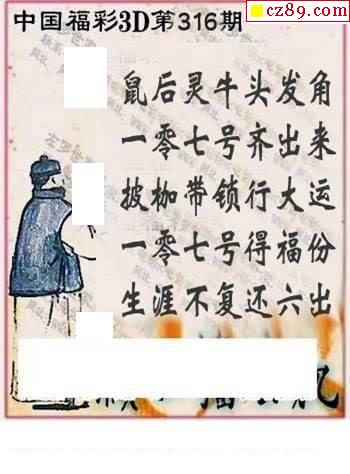 cz89.com
中国福彩3D第316期
鼠后灵牛头发角
一零七号齐出来
披枷带锁行大运
一零七号得福份
生涯不复还六出